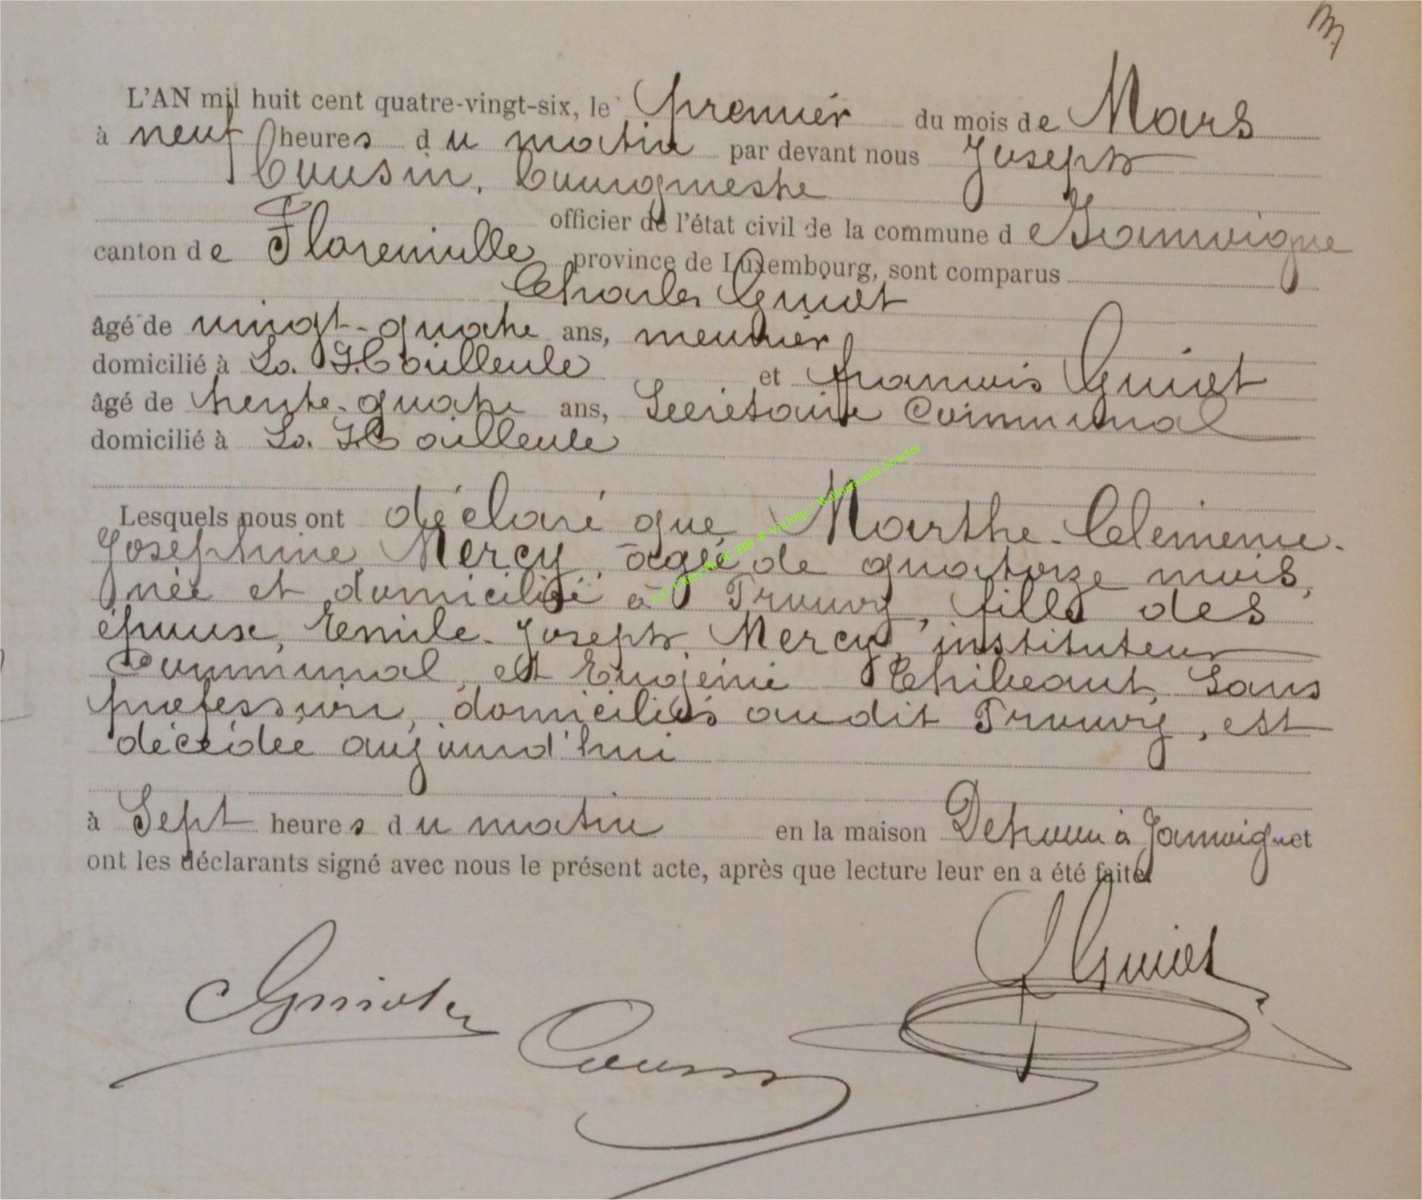 L'AN mil huit cent quatre-vingt-six, le premier du mois de Mars
à neuf heures du matin par devant nous Joseph
Cousin, Bourgmestre
officier de l'état civil de la commune de Jamoigne
canton de Florenville province de Luxembourg, sont comparus
Charles Guiot
âgé de vingt-quatre ans, meunier
domicilié à La Hailleule et françois Guiot
âgé de trente-quatre ans, Secrétaire Communal
domicilié à La Hailleule
Lesquels nous ont déclaré que Marthe-Clémence-
Joséphine Mercy, âgée de quatorze mois,
née et domiciliée à Prouvy, fille des
époux, Emile-Joseph Mercy, instituteur
Communal, et Eugénie Thibeaut, Sans
profession, domiciliés audit Prouvy, est
décédée aujourd'hui
à Sept heures du matin en la maison à Jamoigne et
ont les déclarants signé avec nous le présent acte, après que lecture leur en a été faite.
C Guiot F Guiot
Cousin